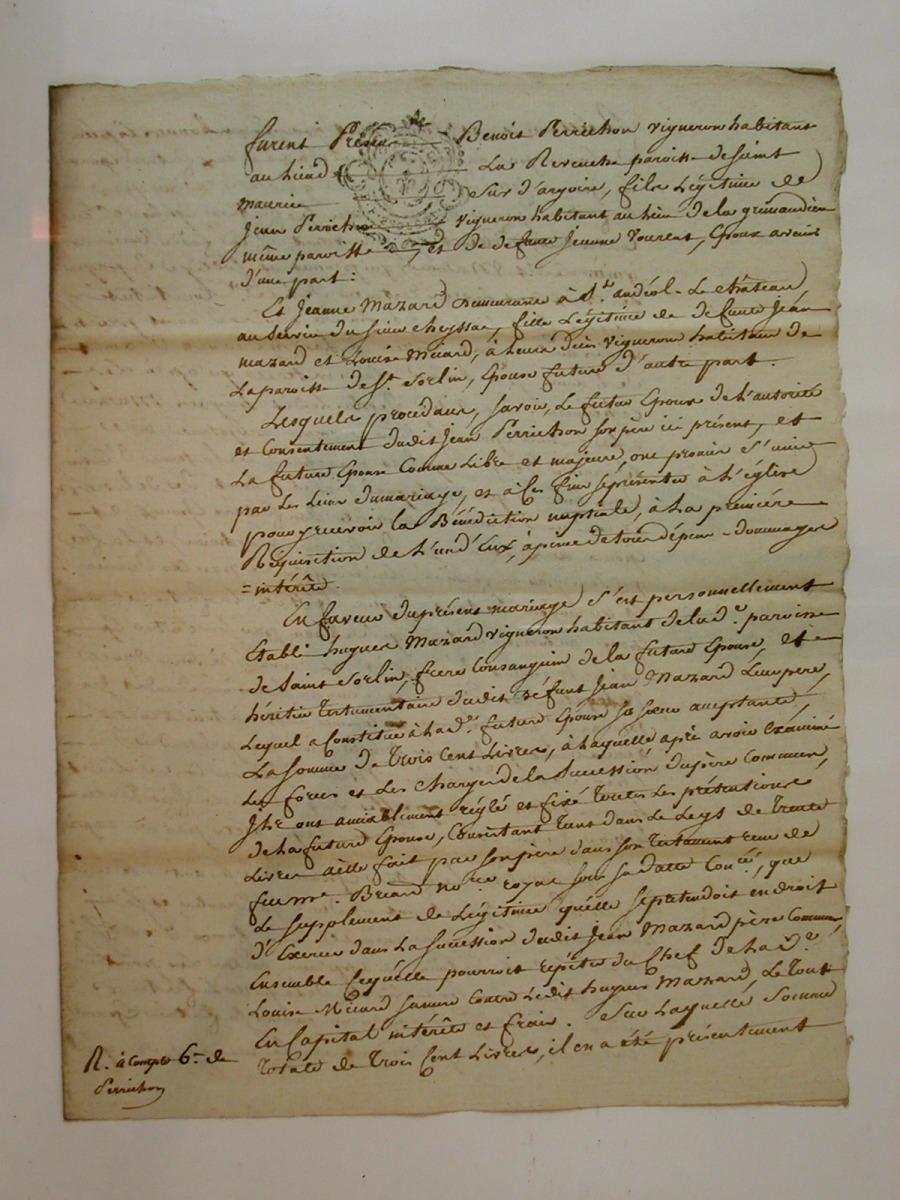 furent Présents Benoit Perrichon vigneron habitant
au lieu de La Revenche paroisse de saint
maurice sur d'argoire, fils légitime de
Jean Perrichon vigneron habitant au lieu de la grimaudiere
même paroisse, et de defunte Jeanne vourent, Epoux avenir
d'une part :
Et Jeanne Mazard demeurante à St. andéol-Le château
au service du sieur cheyssac, fille Légitime de defunts Jean
mazard et Louise Micard, à Leurs vivants vignerons habitans de
La paroisse de St. Sorlin, Epouse future d'autre part.
Lesquels procedans, savoir, Le futur Epoux de L'autorité
et Consentement dudit Jean Perrichon son père ici présent, et
La future Epouse Comme Libre et majeure, ont promis S'unir
par Les Liens du mariage, et à Ces fins se présenter à L'église
pour y recevoir la Bénédiction nuptiale, à La première
Réquisition de L'un d'Eux, à peine de tous dépens-dommages
=intérêts.
En faveur du présent mariage s'est personnellement
Etabli hugues Mazard vigneron habitant de lad.e paroisse
de Saint Sorlin, frere Consanguin de la future Epouse, et
héritier testamentaire dudit défunt Jean Mazard Leur pere
Lequel a Constitué à Lad.e future Epouse sa sœur acceptante,
La somme de trois Cent Livres, à Laquelle après avoir Examiné
Les forces et Les charges de la Succession du père Commun
Ils ont amiablement réglé et fixé toutes Les prétentions
de La future Epouse, Consistant tant dans Le Legs de trente
Livres à Elle fait par son père dans son testament reçu de
feu me. Briand no.re royal sous sa datte Con.lé, que
Le supplement de Légitime qu'elle se prétendoit en droit
d'Exercer dans La succession dudit Jean Mazard père Commun
Ensemble Ce qu'elle pourroit repéter du Chef de Lad.e
Louise Micard sa mere Contre Ledit hugues Mazard, Le tout
En Capital intérêts et frais. Sur Laquelle Somme
totale de trois Cent Livres, il en a été présentement
R. à Compte 6.tt de
Perrichon